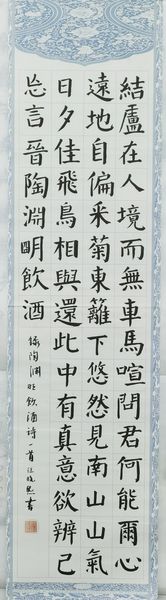 結廬在人境而無車馬喧問君何能爾心
遠地自偏采菊東籬下悠然見南山山氣
日夕佳飛鳥相與還此中有真意欲辨已
忘言晉陶淵明飲酒
錄陶淵明飲酒詩一首 書